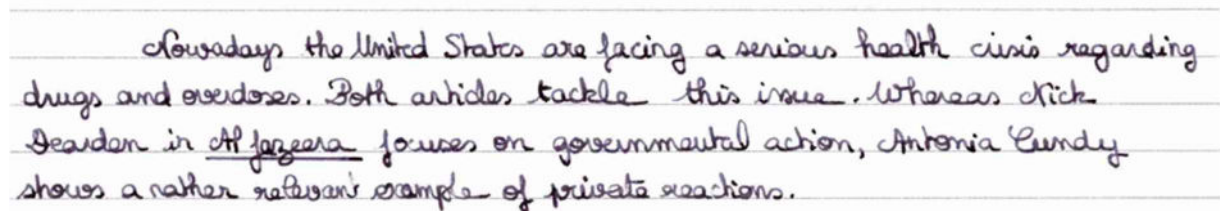 Nowadays the United States are facing a serious health crisis regarding
drugs and overdoses. Both articles tackle this issue. Whereas Nick
Dearden in Al Jazeera focuses on governmental action, Antonia Cundy
shows a rather relevant example of private reactions.